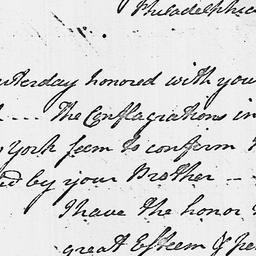 Philadelphia
yesterday honored with you
.... The Conflagrations in
York seem to confirm
by your Brother --
I have the honor
great Esteem &